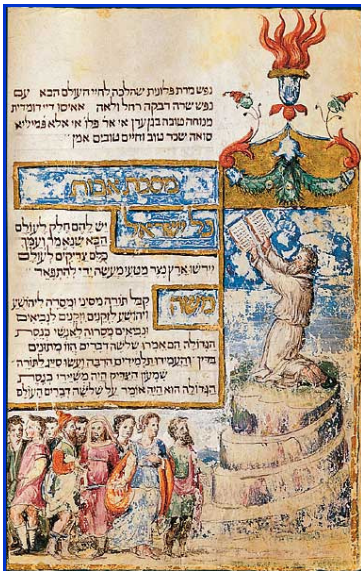 נפש מרת פלונית שהלכה לחיי העולם הבא עם
נפש שרה רבקה רחל ולאה
מנוחה טובה אי אלא פמיליא
סואה שכר טוב וחיים טובים אמן
מסכת אבות
כל ישראל
יש להם חלק לעולם
הבא שנאמר ועמך
כלם צדיקים לעולם
יירשו ארץ נצר מטעי מעשה ידי להתפאר
משה
קבל תורה מסיני ומסרה ליהושע
ויהושע לזקנים וזקנים לנביאים
ונביאים מסרוה לאנשי כנסת
הגדולה הם אמרו שלשה דברים הוו מתונים
בדין והעמידו תלמידים הרבה ועשו סייג לתורה
שמעון הצדיק היה משיירי כנסת
הגדולה הוא היה אומר על שלשה דברים העולם